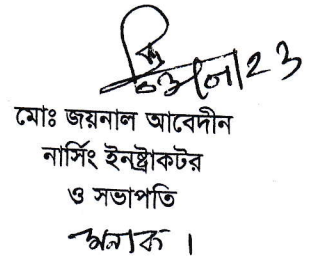 মোঃ জয়নাল আবেদীন
নার্সিং ইনষ্ট্রাকটর
ও সভাপতি